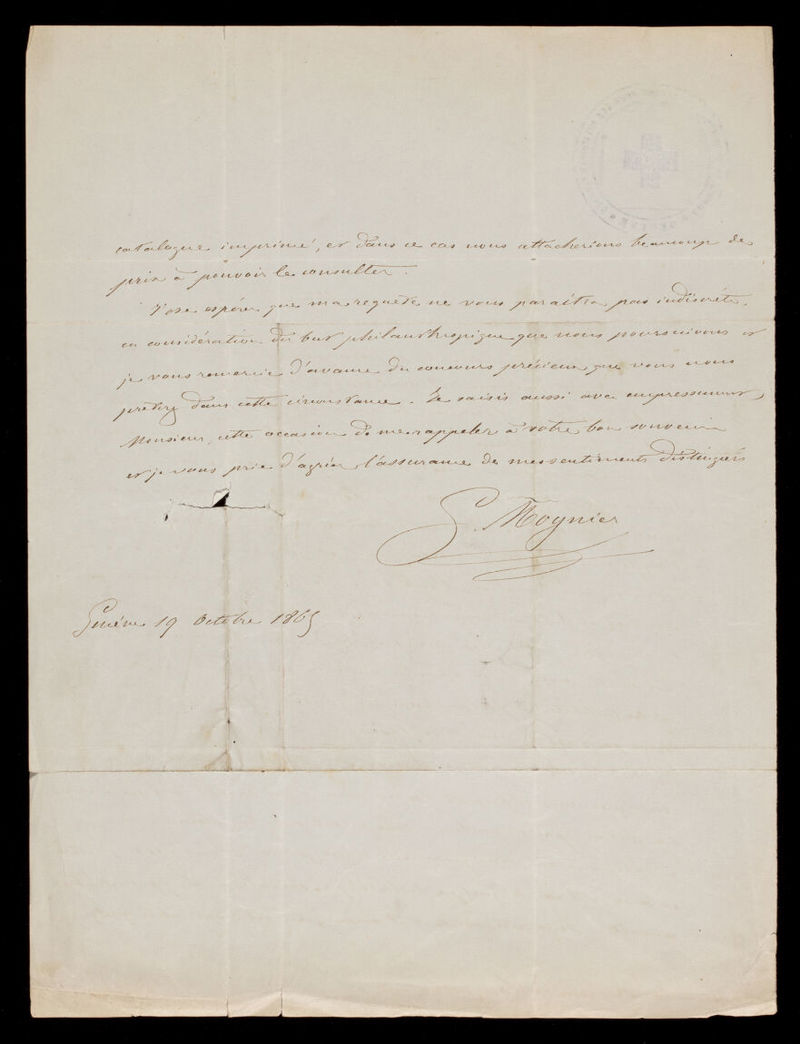 catalogue imprimé, et dans ce cas nous attacherions beaucoup de
prix à pouvoir le consulter.
J'ose espérer que ma requête ne vous paraîtra pas indiscrète,
en considération du but philanthropique que nous poursuivons et
je vous remercie d'avance du concours précieux que vous nous
prêterez dans cette circonstance. Je saisis aussi avec empressement,
Monsieur, cette occasion de me rappeler à votre bon souvenir
et je vous prie d'agréer l'assurance de mes sentiments distingués
G. Moynier
Genève 19 Octobre 1865